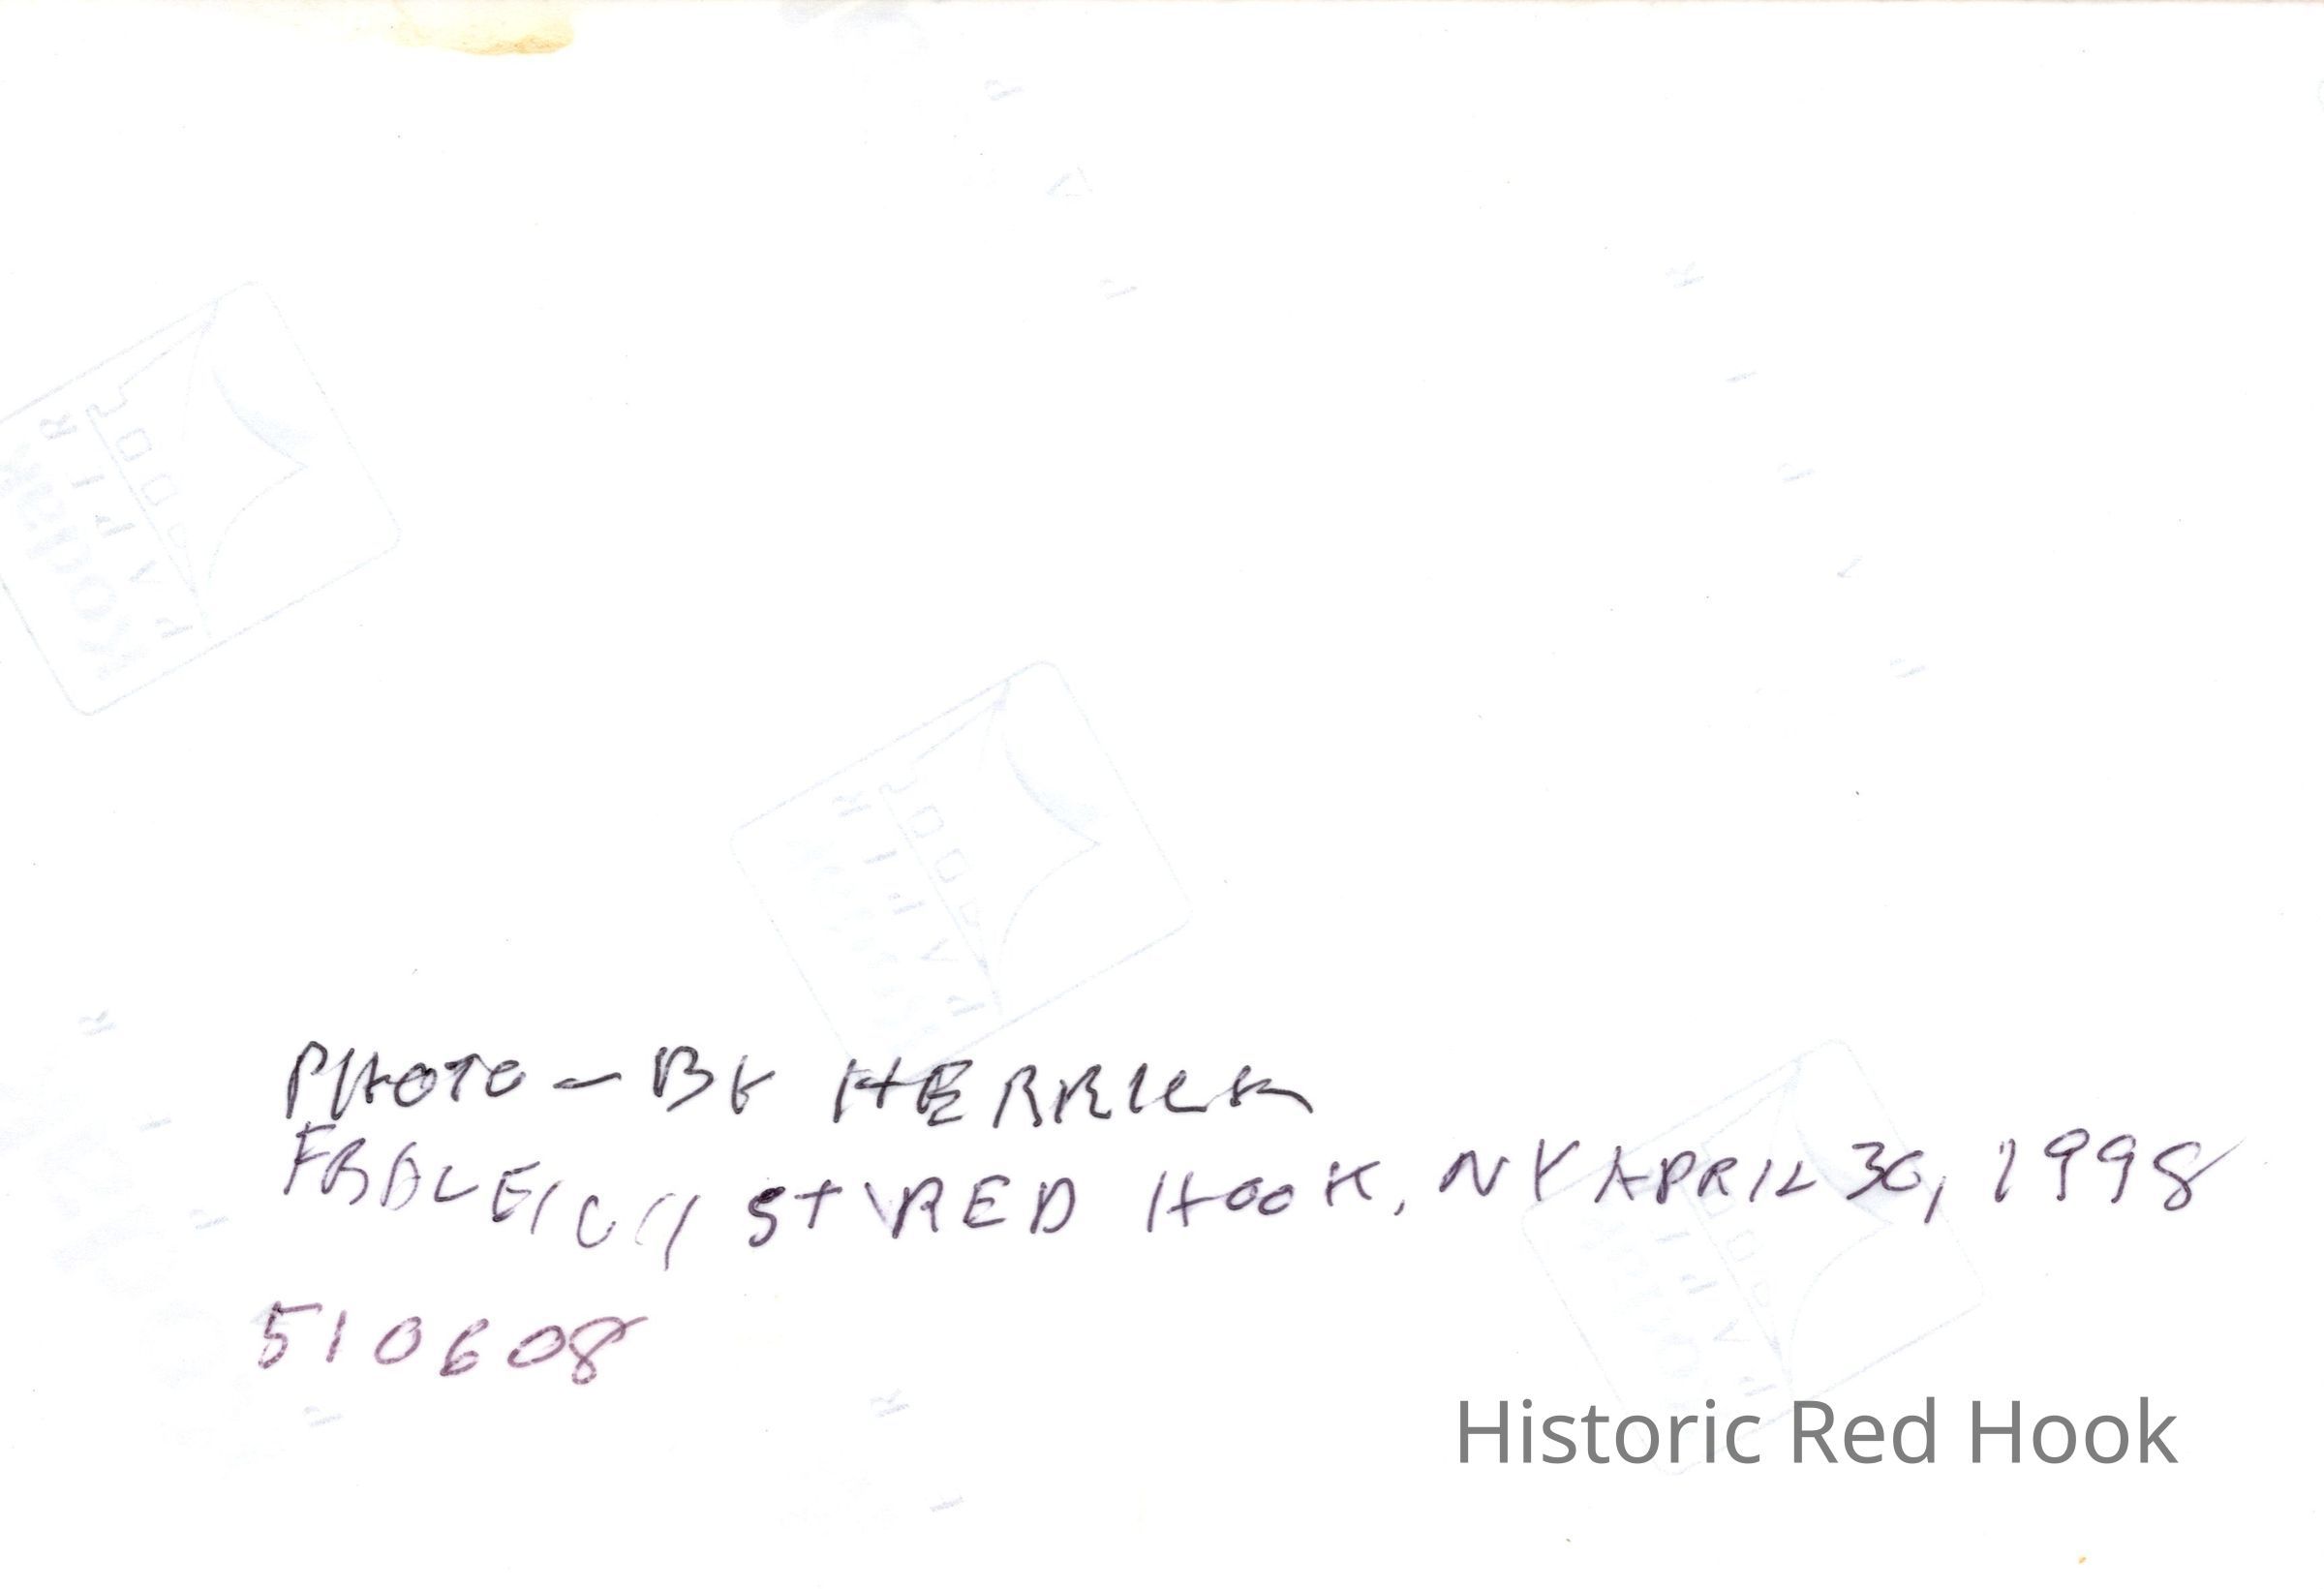 PHOTO - BY HERRICK
ST RED HOOK, NY APRIL 30, 1998
510608
Historic Red Hook